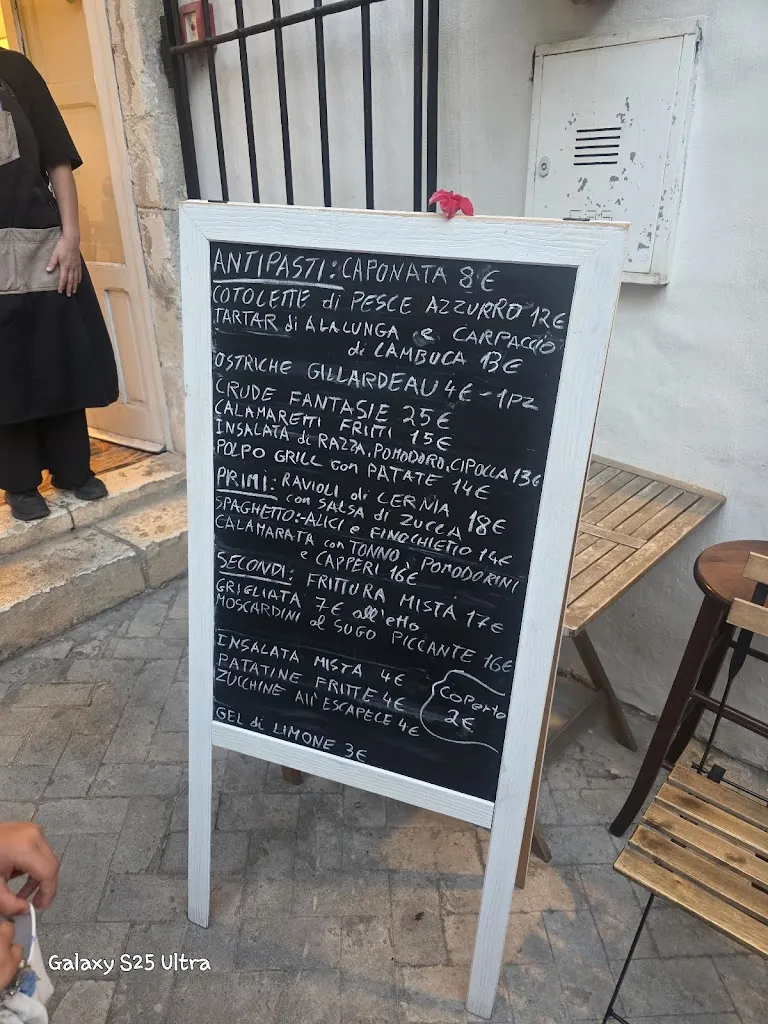 ANTIPASTI: CAPONATA 8€
COTOLETTE di PESCE AZZURRO 12€
TARTAR di ALALUNGA e CARPACCIO
di LAMBUCA 13€
OSTRICHE GILLARDEAU 4€-1PZ
CRUDE FANTASIE 25€
CALAMARETTI FRITTI 15€
INSALATA di RAZZA, POMODORO, CIPOLLA 13€
POLPO GRILL con PATATE 14€
PRIMI: RAVIOLI di CERNIA
con SALSA di ZUCCA 18€
SPAGHETTO:-ALICI e FINOCHIETTO 14€
CALAMARATA con TONNO, POMODORINI
e CAPPERI 16€
SECONDI: FRITTURA MISTA 17€
GRIGLIATA 7€ all'etto
MOSCARDINI al SUGO PICCANTE 16€
INSALATA MISTA 4€
PATATINE FRITTE 4€
ZUCCHINE All'ESCAPECE 4€
Coperto
2€
GEL di LIMONE 3€
Galaxy S25 Ultra